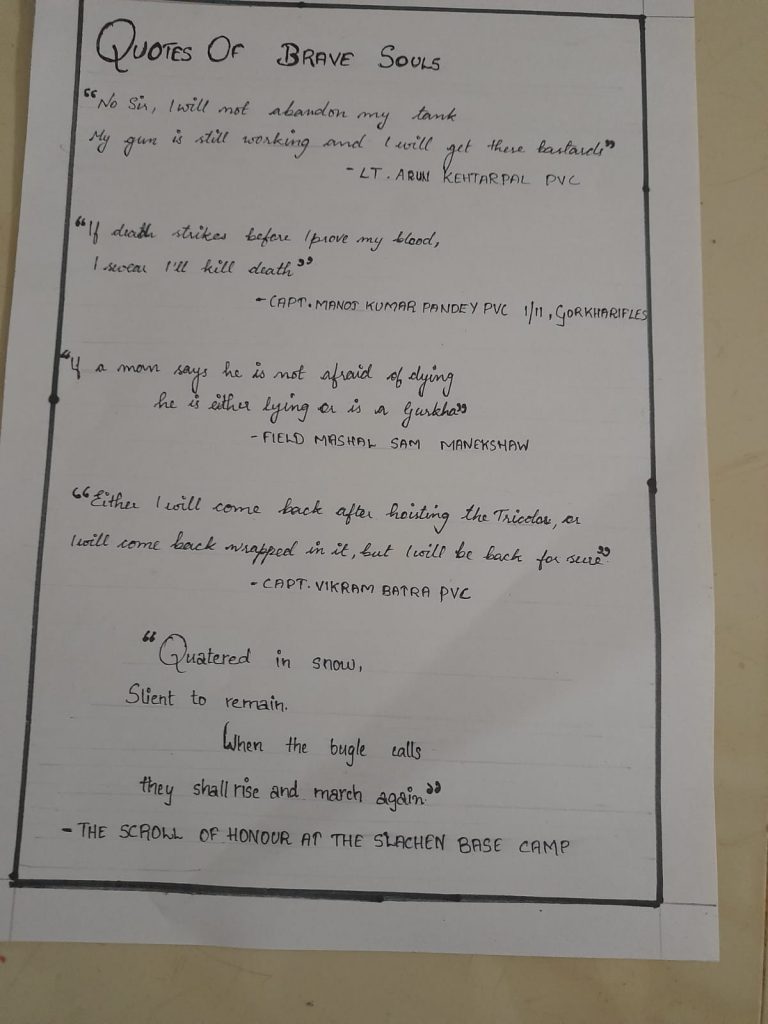 QUOTES OF BRAVE SOULS
"No Sir, I will not abandon my tank
My gun is still working and I will get these bastards"
- LT. ARUN KEHTARPAL PVC
"If death strikes before I prove my blood,
I swear I'll kill death"
- CAPT. MANOJ KUMAR PANDEY PVC 1/11, GORKHARIFLES
"If a man says he is not afraid of dying
he is either lying or is a Gurkha"
- FIELD MASHAL SAM MANEKSHAW
"Either I will come back after hoisting the Tricolor, or
I will come back wrapped in it, but I will be back for sure"
- CAPT. VIKRAM BATRA PVC
"Quatered in snow,
Slient to remain.
When the bugle calls
they shall rise and march again"
- THE SCROLL OF HONOUR AT THE SLACHEN BASE CAMP